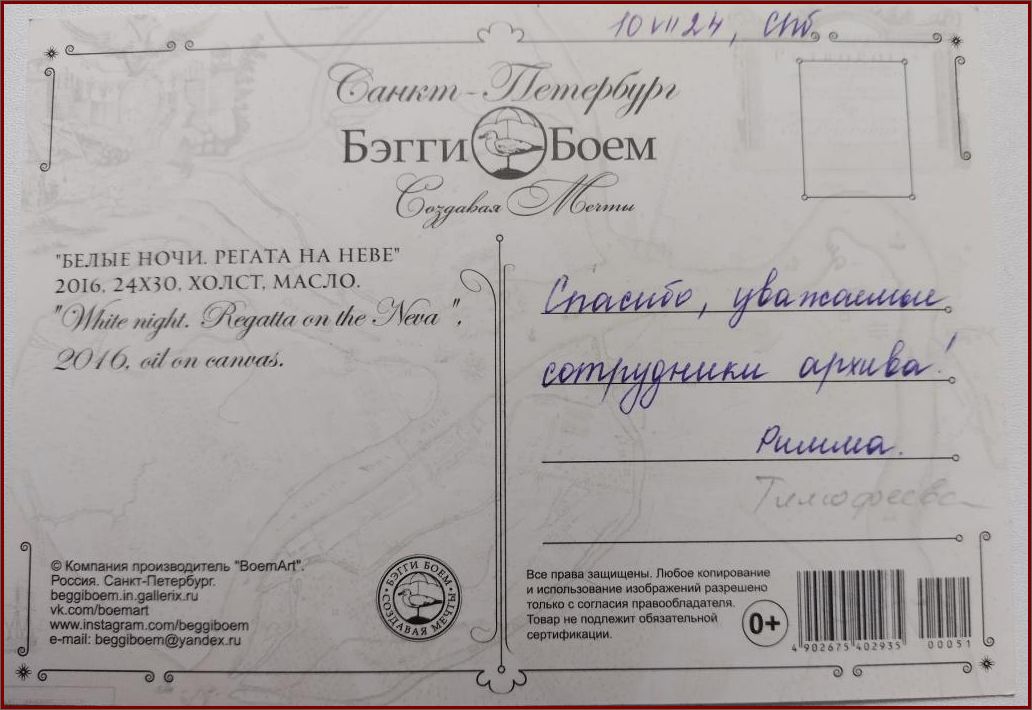 10 VII 24, Спб
Санкт-Петербург
Бэгги Боем
Создавая Мечты
"БЕЛЫЕ НОЧИ. РЕГАТА НА НЕВЕ"
2016, 24Х30, ХОЛСТ, МАСЛО.
"White night. Regatta on the Neva ",
2016, oil on canvas.
Спасибо, уважаемые
сотрудники архива!
Римма.
Тимофеева
© Компания производитель "BoemArt".
Россия. Санкт-Петербург.
beggiboem.in.gallerix.ru
vk.com/boemart
www.instagram.com/beggiboem
e-mail: beggiboem@yandex.ru
БЭГГИ БОЕМ
СОЗДАВАЯ МЕЧТЫ
Все права защищены. Любое копирование
и использование изображений разрешено
только с согласия правообладателя.
Товар не подлежит обязательной
сертификации.
0+
4 902675 402935
00051